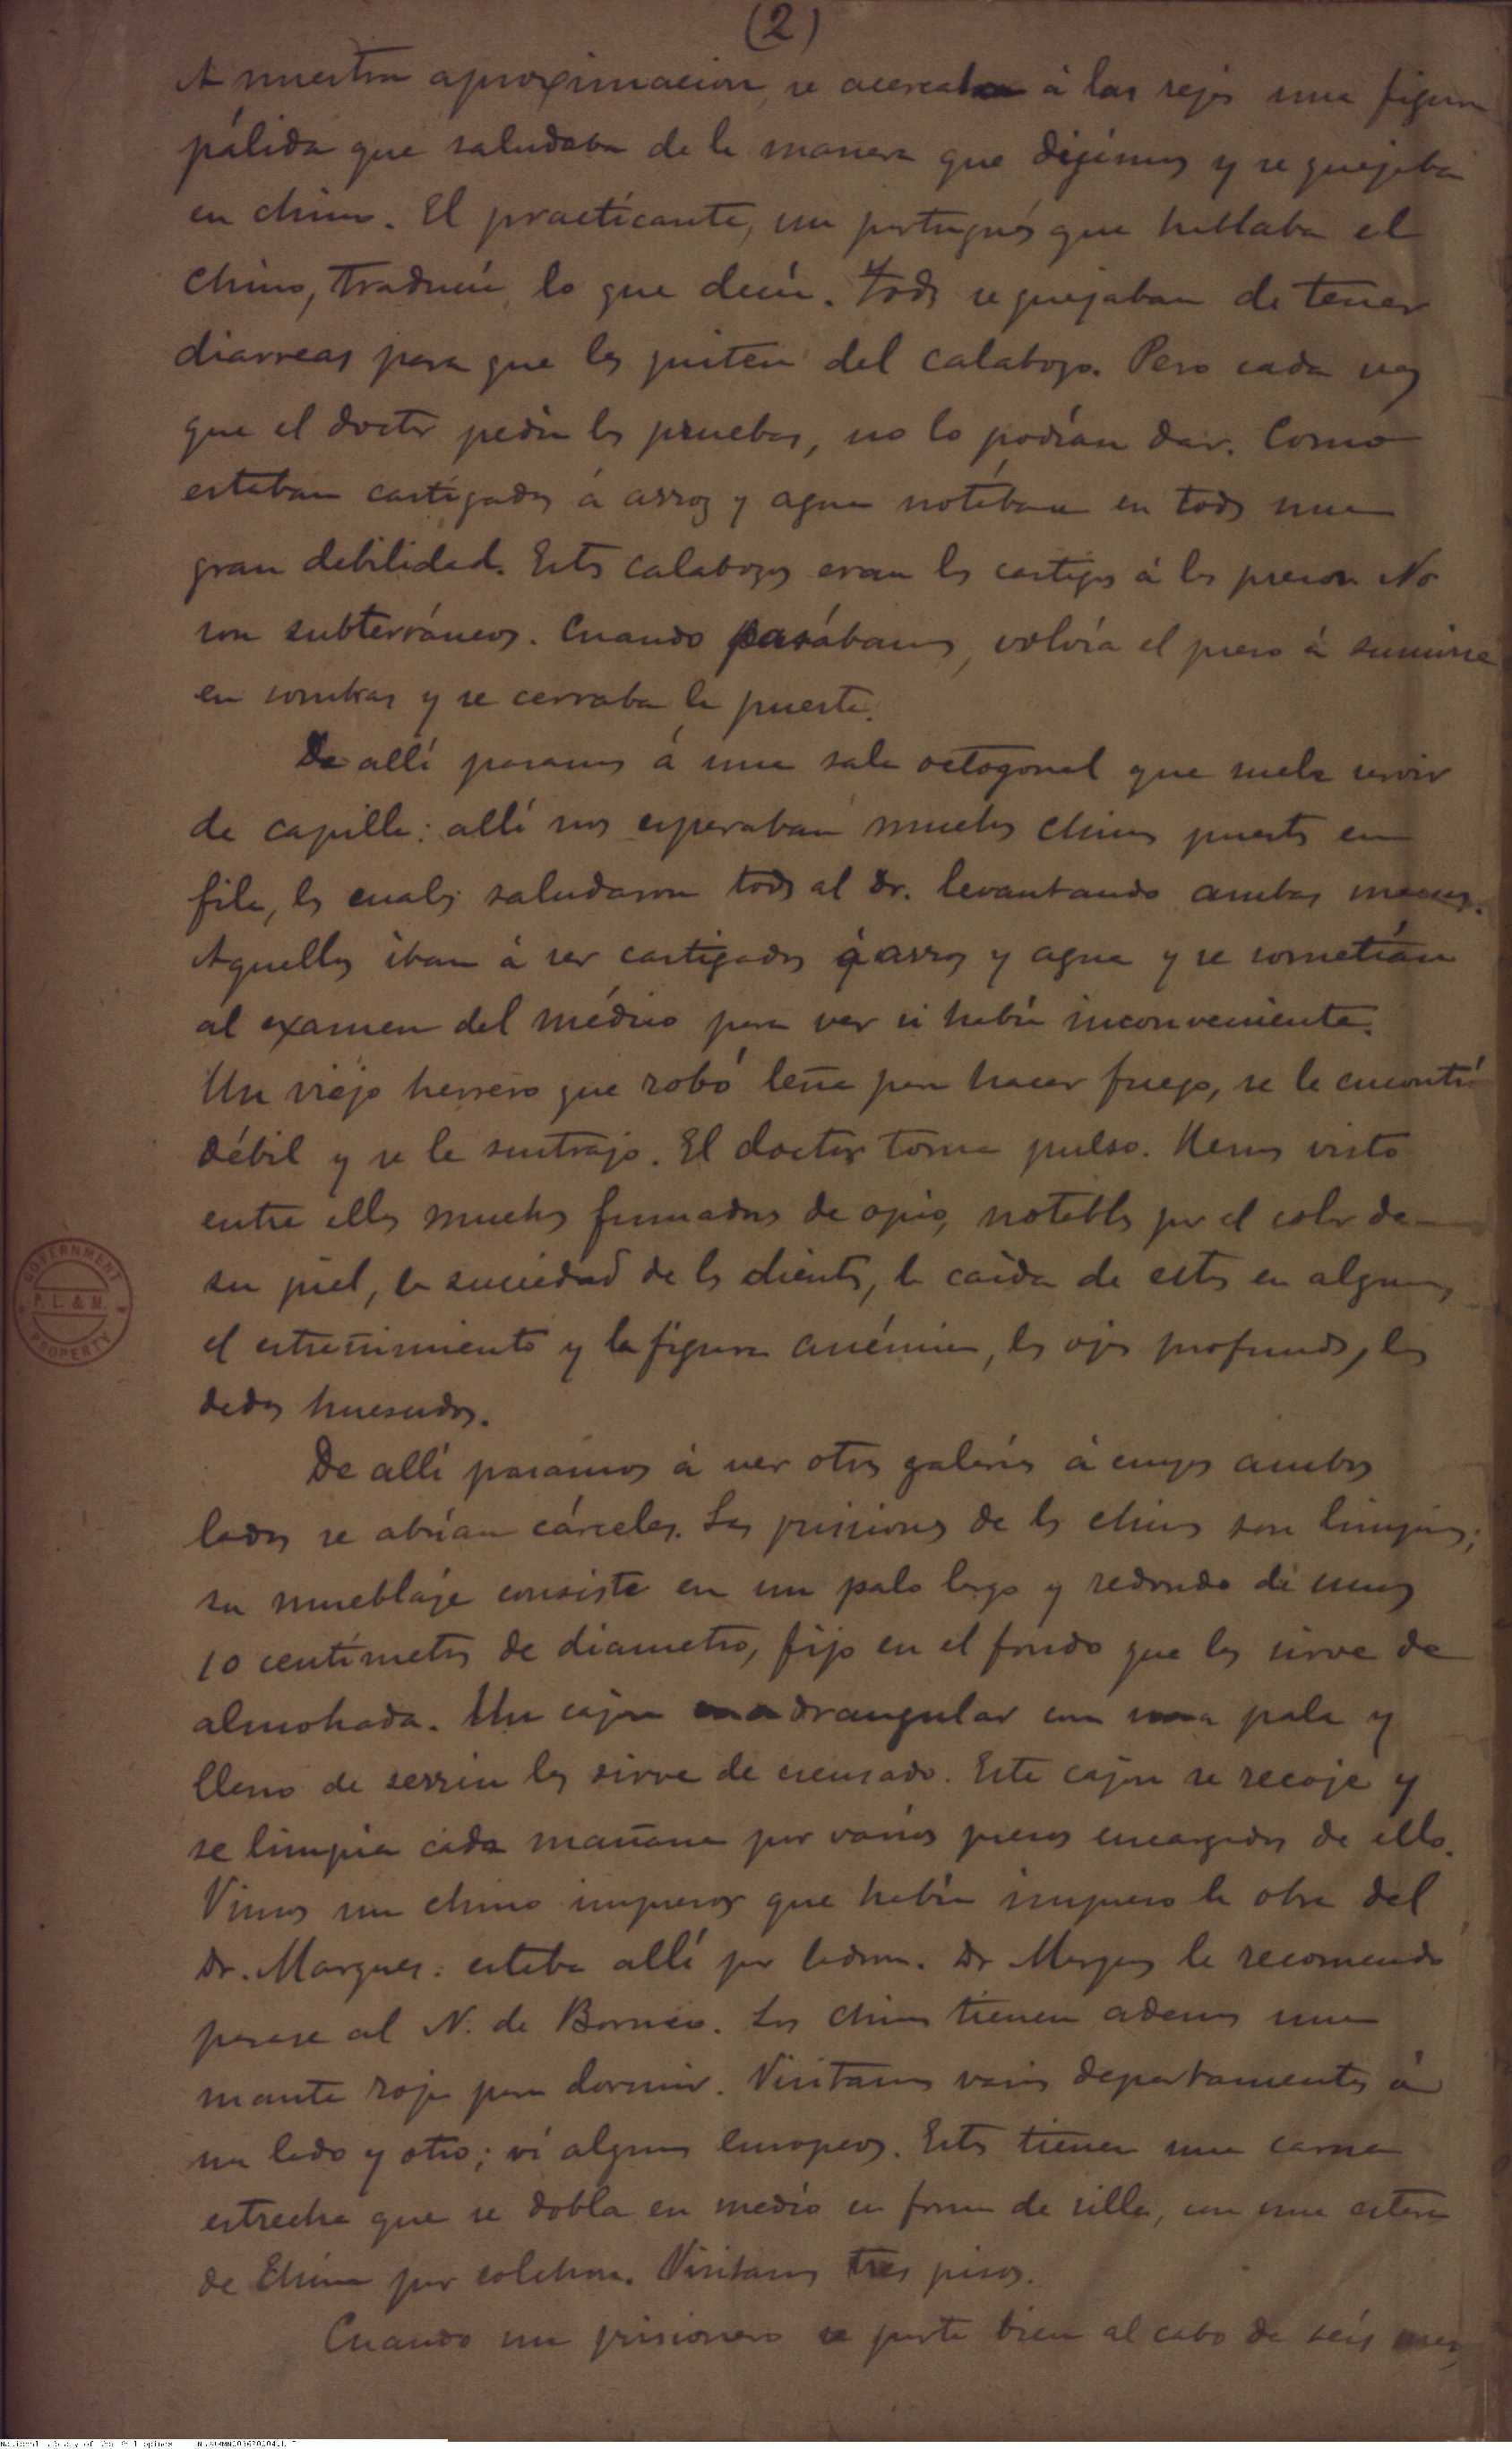 (2)
A nuestra aproximacion, se acercaba á las rejas una figura
pálida que saludaba de la manera que digimos y se quejaba
en chino. El practicante, un portugués que hablaba el
chino, traducía lo que decía. Todos se quejaban de tener
diarreas para que les quiten del calabozo. Pero cada vez
que el doctor pedía las pruebas, no lo podían dar. Como
estaban castigados á arroz y agua notábase en todos una
gran debilidad. Estos calabozos eran los castigos á los presos. No
son subterráneos. Cuando pasábamos, volvía el preso á sumirse
en sombras y se cerraba la puerta.
De allí pasamos á una sala octogonal que suele servir
de capilla: allí nos esperaban muchos chinos puestos en
fila, los cuales saludaron todos al Dr. levantando ambas manos.
Aquellos iban á ser castigados á arroz y agua y se sometían
al examen del médico para ver si había inconveniente.
Un viejo herrero que robó leña para hacer fuego, se le encontró
débil y se le sustrajo. El doctor toma pulso. Hemos visto
entre ellos muchos fumadores de opio, notables por el color de
su piel, la suciedad de los dientes, la caida de estos en algunos,
el estreñimiento y la figura anémica, los ojos profundos, los
dedos huesudos.
De allí pasamos á ver otras galerías á cuyos ambos
lados se abrían cárceles. Las prisiones de los chinos son limpias;
su mueblaje consiste en un palo largo y redondo de unos
10 centímetros de diametro, fijo en el fondo que les sirve de
almohada. Un cajon cuadrangular con una pala y
lleno de serrin les sirve de escusado. Este cajon se recoje y
se limpia cada mañana por varios presos encargados de ello.
Vimos un chino impresor que había impreso la obra del
Dr. Marques: estaba allí por ladron. Dr Marques le recomendó
pasase al N. de Borneo. Los chinos tienen ademas una
manta roja para dormir. Visitamos varios departamentos á
un lado y otro; ví algunos Europeos. Estos tienen una cama
estrecha que se dobla en medio en forma de silla, con una estera
de China por colchon. Visitamos tres pisos.
Cuando un prisionero se porta bien al cabo de seis meses
GOVERNMENT
P. L. & M.
PROPERTY
National Library of the Philippines